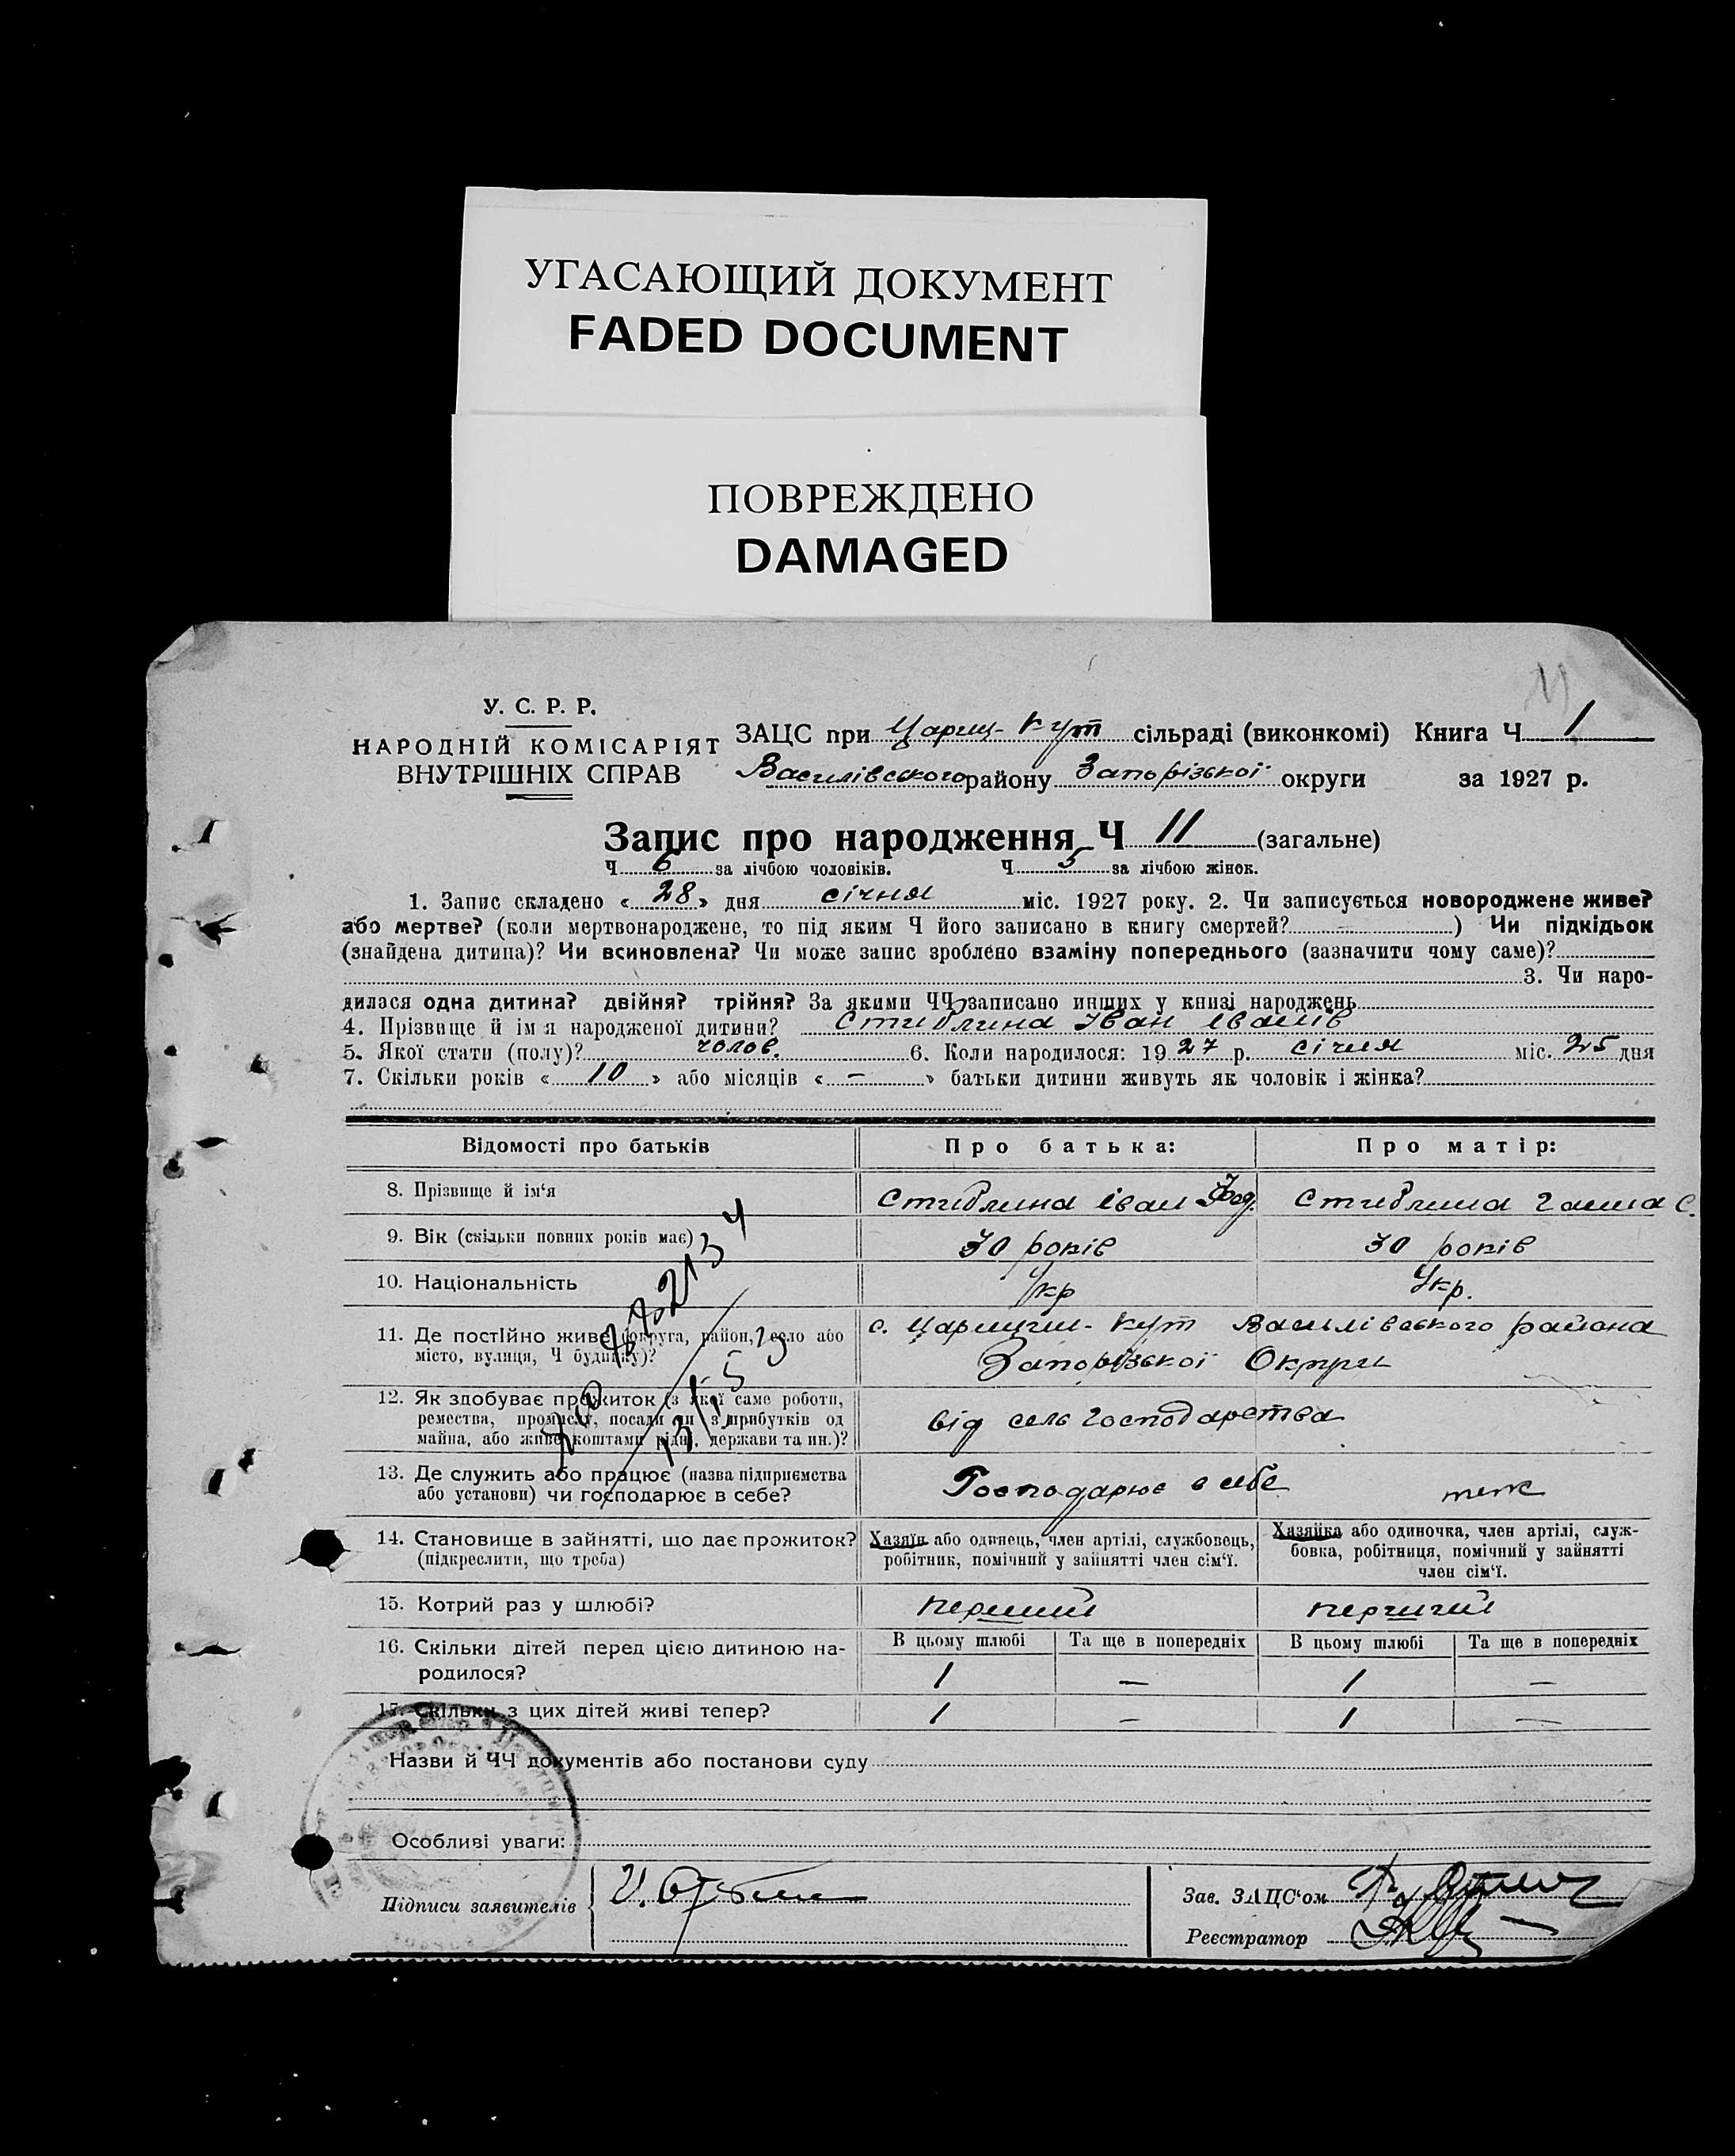 УГАСАЮЩИЙ ДОКУМЕНТ
FADED DOCUMENT
ПОВРЕЖДЕНО
DAMAGED
У. С. Р. Р.
НАРОДНІЙ КОМІСАРІЯТ
ВНУТРІШНІХ СПРАВ
ЗАЦС при Цариц- Кут сільраді (виконкомі) Книга Ч 1
Василівського району Запорізької округи за 1927 р.
Запис про народження Ч 11 (загальне)
Ч 6 за лічбою чоловіків. Ч 5 за лічбою жінок.
1. Запис складено « 28 » дня січня міс. 1927 року. 2. Чи записується новороджене живе?
або мертве? (коли мертвонароджене, то під яким Ч його записано в книгу смертей? – ) Чи підкідьок
(знайдена дитина)? Чи всиновлена? Чи може запис зроблено взаміну попереднього (зазначити чому саме)?
3. Чи наро-
дилася одна дитина? двійня? трійня? За якими ЧЧ записано инших у книзі народжень
4. Прізвище й ім'я народженої дитини? Стиблина Іван Іванів
5. Якої стати (полу)? чолов. 6. Коли народилося: 1927 р. січня міс. 25 дня
7. Скільки років « 10 » або місяців « – » батьки дитини живуть як чоловік і жінка?
Відомості про батьків Про батька: Про матір:
8. Прізвище й ім'я Стиблина Іван Стиблина Ганна С.
9. Вік (скільки повних років має) 30 років 30 років
10. Національність Укр Укр.
11. Де постійно живе (округа, район, село або
місто, вулиця, Ч будинку)?
с. Царицин- Кут Василівського района
Запорізької Округи
12. Як здобуває прожиток (з якої саме роботи,
ремества, промислу, посади чи з прибутків од
майна, або живе коштами рідні, держави та ин.)?
від сель господарства
13. Де служить або працює (назва підприємства
або установи) чи господарює в себе?
Господарює в себе теж
14. Становище в зайнятті, що дає прожиток?
(підкреслити, що треба)
Хазяїн або одинець, член артілі, службовець,
робітник, помічний у зайнятті член сім'ї.
Хазяйка або одиночка, член артілі, служ-
бовка, робітниця, помічний у зайнятті
член сім'ї.
15. Котрий раз у шлюбі? перший перший
16. Скільки дітей перед цією дитиною на-
родилося?
В цьому шлюбі Та ще в попередніх В цьому шлюбі Та ще в попередніх
1 – 1 –
17. Скільки з цих дітей живі тепер? 1 – 1 –
Назви й ЧЧ документів або постанови суду
Особливі уваги:
Підписи заявителів
Зав. ЗАЦС'ом
Реєстратор